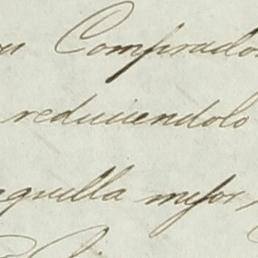 Comprado
reduciendolo
quilla mejor,